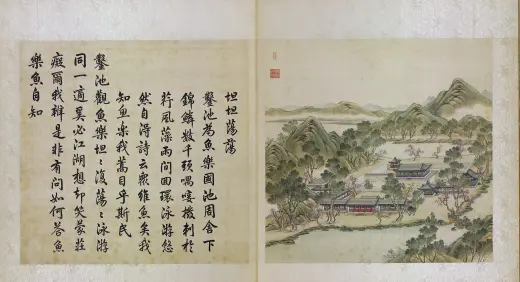 坦坦蕩蕩
鑿池為魚樂國池周舍下
錦鱗數千頭喁唼撥刺於
荇風藻雨間回環泳游悠
然自得詩云衆維魚矣我
知魚樂我蒿目乎斯民
鑿池觀魚樂坦〻復蕩〻泳游
同一適奚必江湖想却笑蒙莊
癡爾我辯是非有問如何答魚
樂魚自知